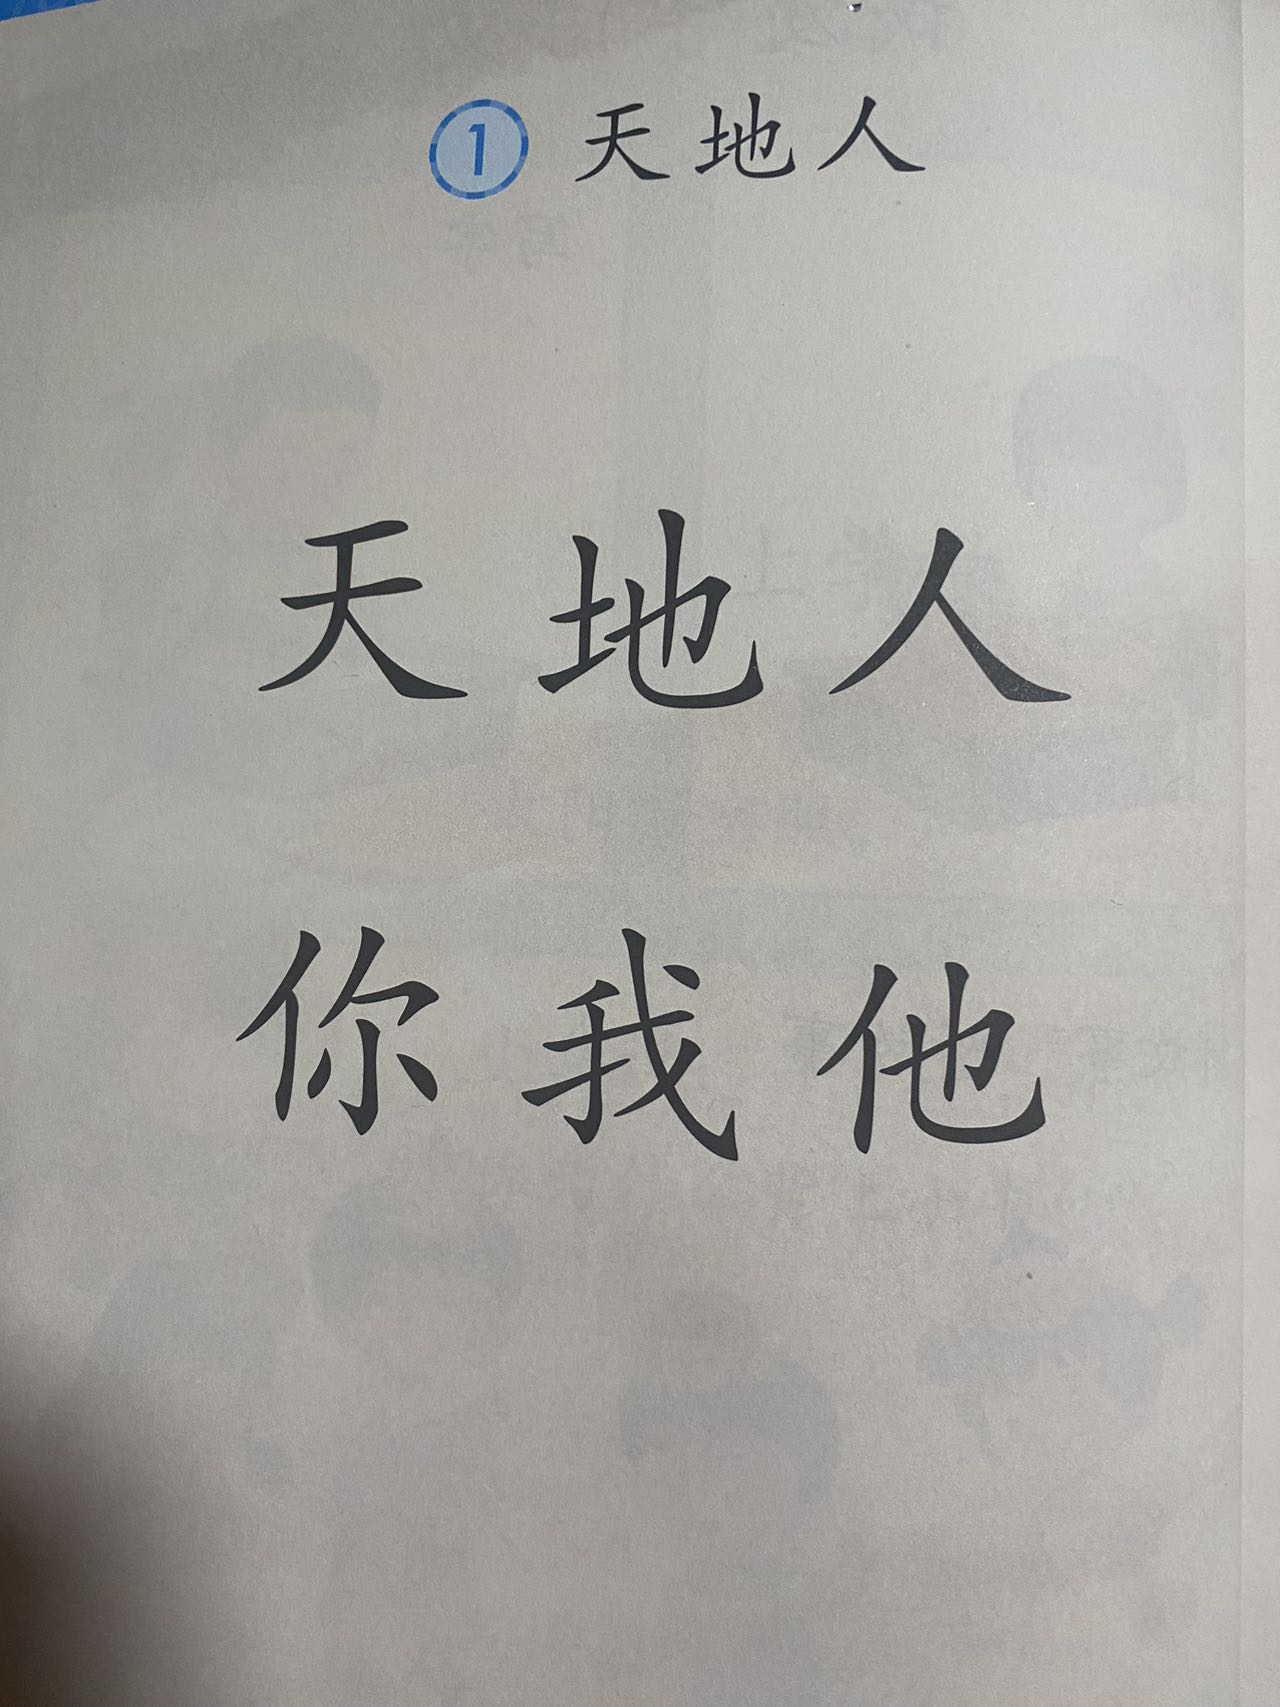 1 天地人
天地人
你我他